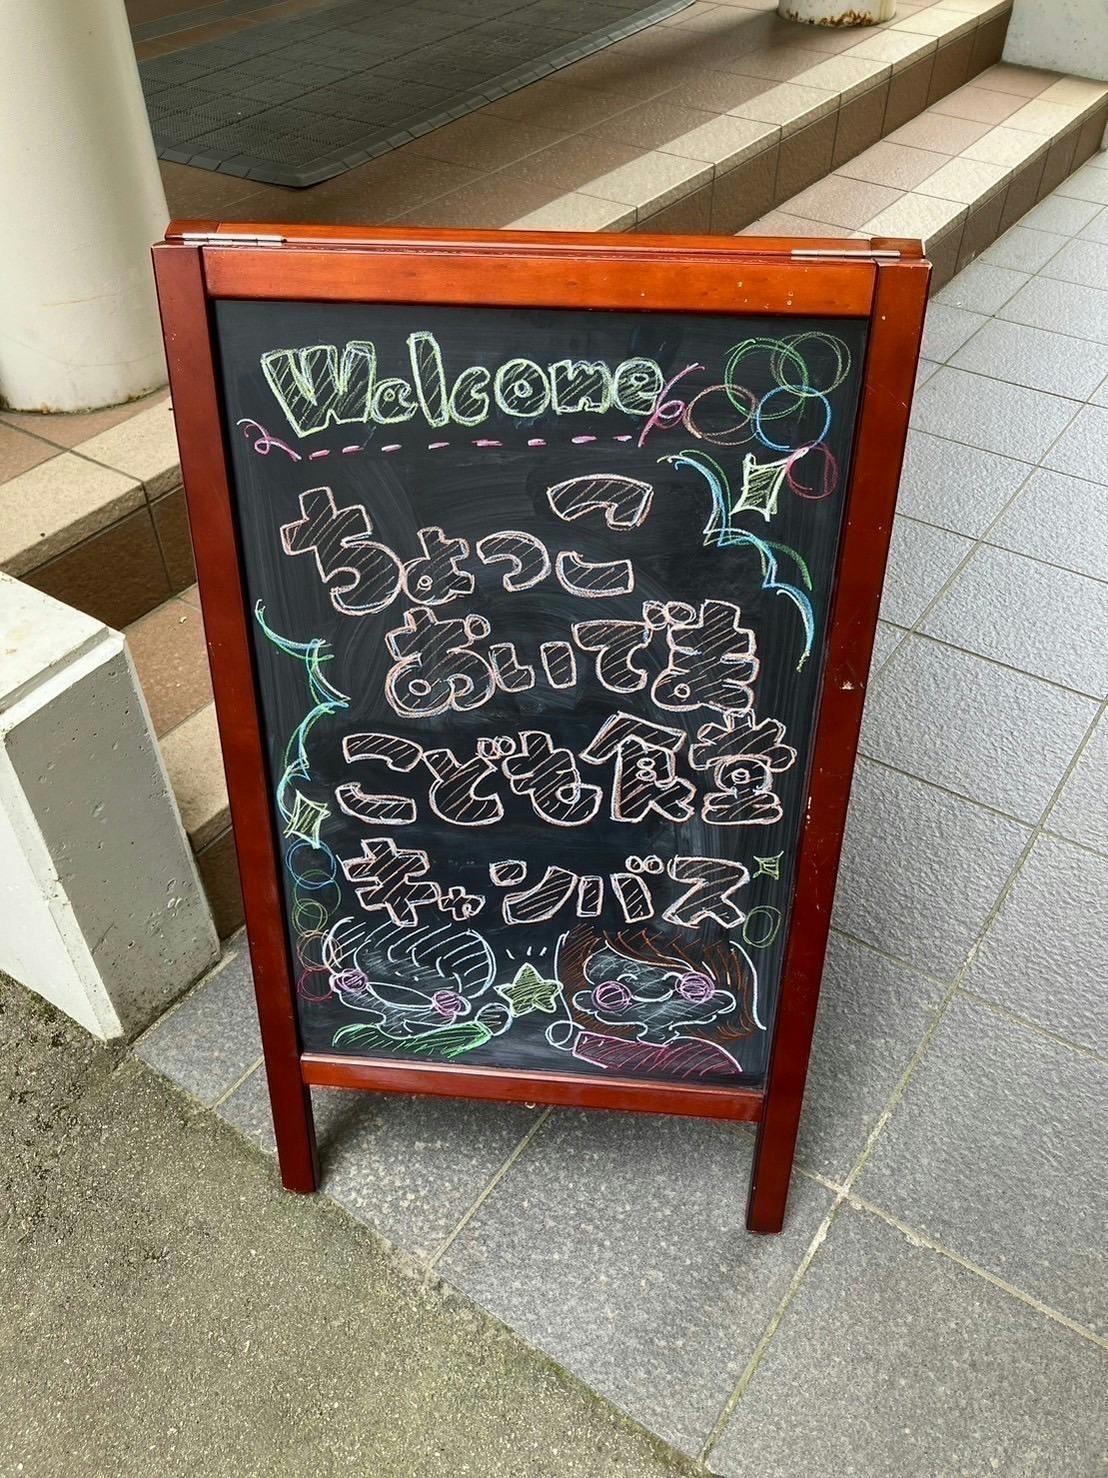 Welcome
ちょっこ
おいでま
こども食堂
キャンバス